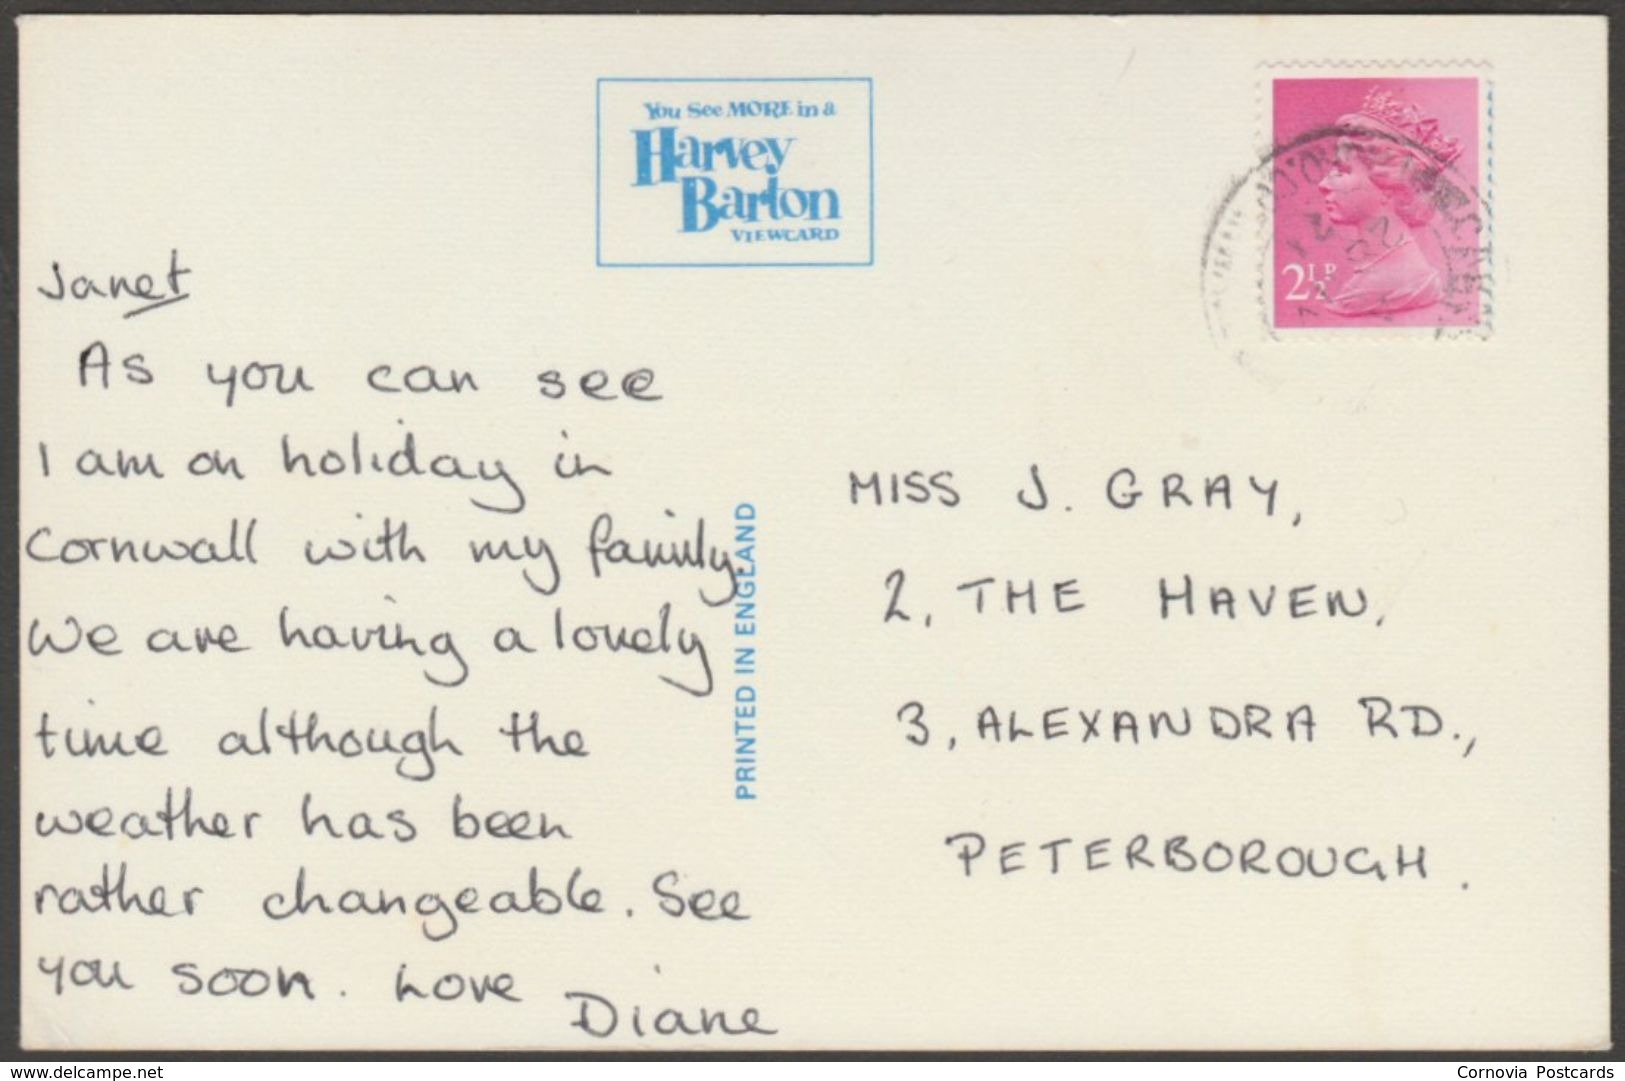 You See MORE in a
Harvey
Barton
VIEWCARD
2½P
Janet
As you can see
I am on holiday in
Cornwall with my family.
We are having a lovely
time although the
weather has been
rather changeable. See
you soon. Love
Diane
PRINTED IN ENGLAND
MISS J. GRAY,
2, THE HAVEN,
3, ALEXANDRA RD.,
PETERBOROUGH.
delcampe.net
Cornovia Postcards